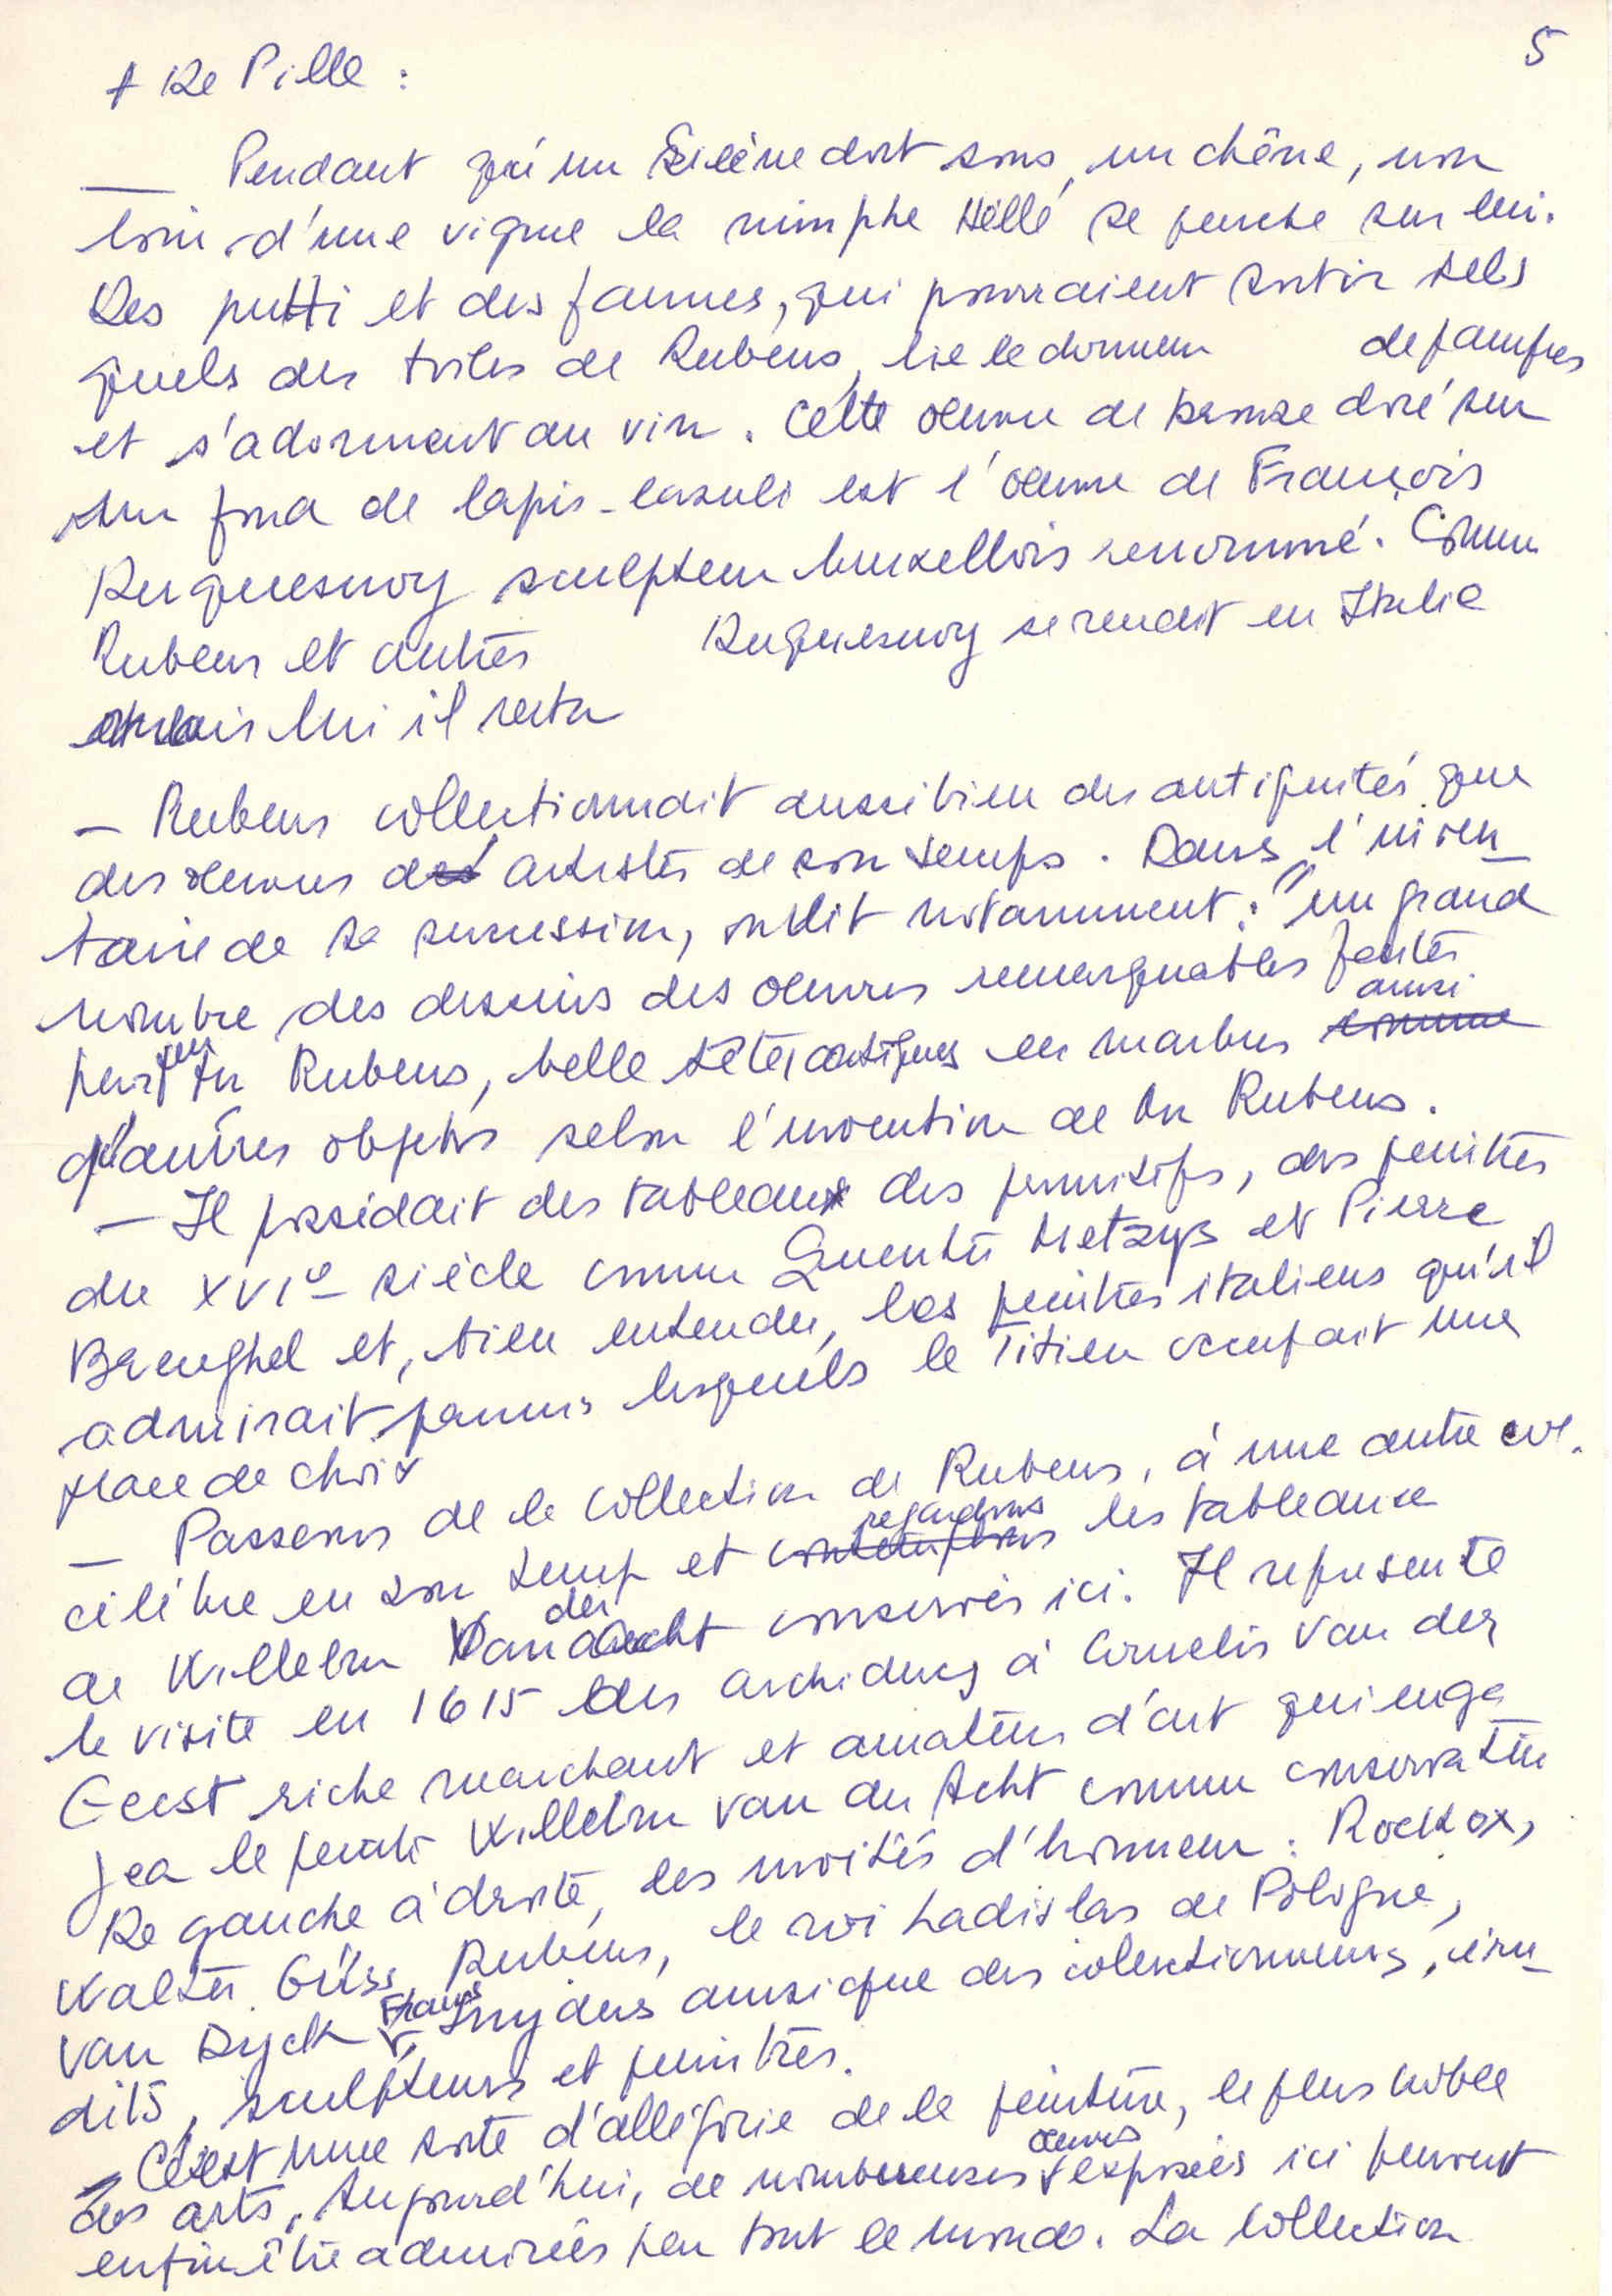 5
+ De Pille :
— Pendant qu'un Silène dort sous un chêne, non
loin d'une vigne la nimphe Héllé se penche sur lui.
Des putti et des faunes, qui pourraient sortir tels
quels des toiles de Rubens, lie le dormeur de pampres
et s'adorment au vin. Cette oeuvre de bronze doré sur
un fond de lapis-lasuli est l'oeuvre de François
Duquesnoy sculpteur bruxellois renommé. Comme
Rubens et autres Duquesnoy se rendit en Italie
mais lui il resta
— Rubens collectionnait aussi bien des antiquités que
des oeuvres des artistes de son temps. Dans l'inven-
taire de sa succession, on lit notamment : "un grand
nombre des dessins des oeuvres remarquables faites
par feu Mr Rubens, belle têtes antiques en marbres comme ainsi
d'autres objets selon l'invention de Mr Rubens.
— Il possédait des tableaux des primitifs, des peintres
du XVIe siècle comme Quentin Metzys et Pierre
Breughel et, bien entendu, les peintres italiens qu'il
admirait parmis lesquels le Titien occupait une
place de choix
— Passons de la collection de Rubens, à une autre col.
célèbre en son temp et contemplons regardons les tableaux
de Willelm Van der Aecht conservés ici. Il représente
la visite en 1615 des archiducs à Cornelis Van der
Geest riche marchant et amateur d'art qui enga
gea le peintre Willelm van der Acht comme conservateur
De gauche à droite, les invités d'honneur : Rockox,
Walter Güss, Rubens, le roi Ladislas de Pologne,
Van Dyck, Frans Snyders ainsi que des colectionneurs, éru-
dits, sculpteurs et peintres.
— C'est une sorte d'allégorie de la peinture, le plus noble
des arts. Aujourd'hui, de nombreuses oeuvres exposées ici peuvent
enfin être admirées par tout le monde. La collection